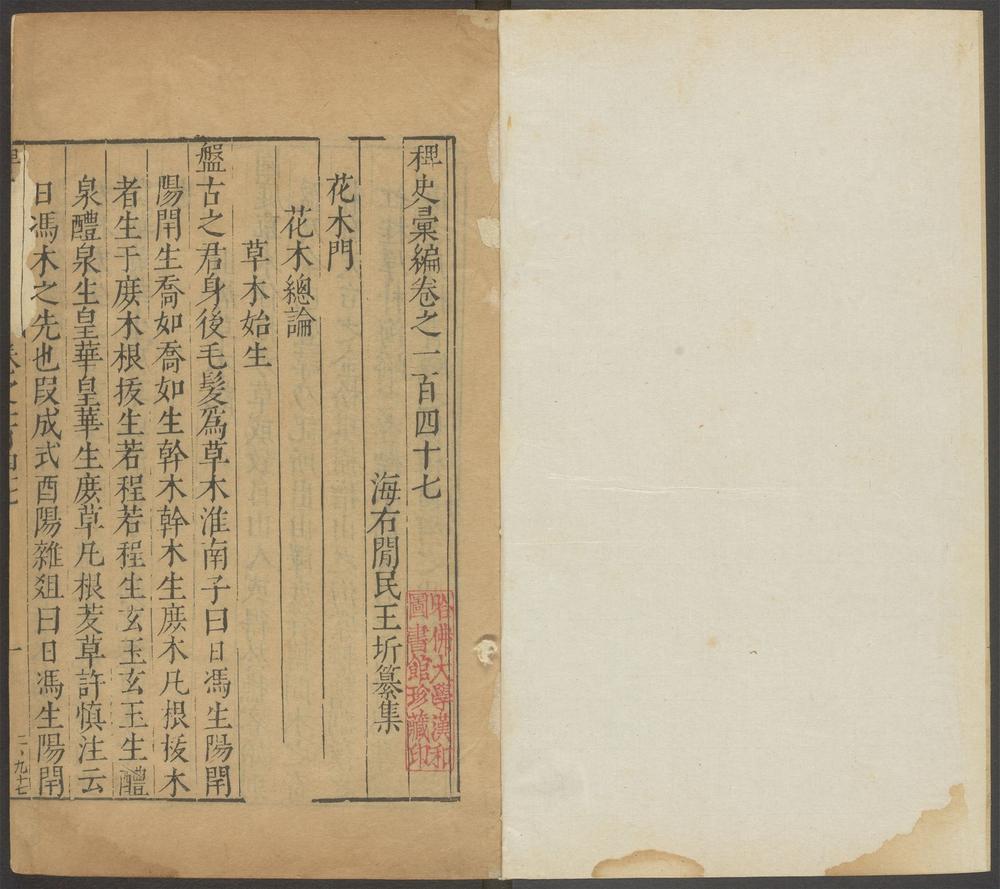 稗史彙編卷之一百四十七
海右閒民王圻纂集
哈佛大學漢和
圖書館珍藏印
花木門
花木總論
草木始生
盤古之君身後毛髮爲草木淮南子曰日馮生陽閼
陽閼生喬如喬如生幹木幹木生庶木凡根拔木
者生于庶木根拔生若程若程生玄玉玄玉生醴
泉醴泉生皇華皇華生庶草凡根茇草許慎注云
日馮木之先也段成式酉陽雜爼曰日馮生陽閼
一
二、九十七